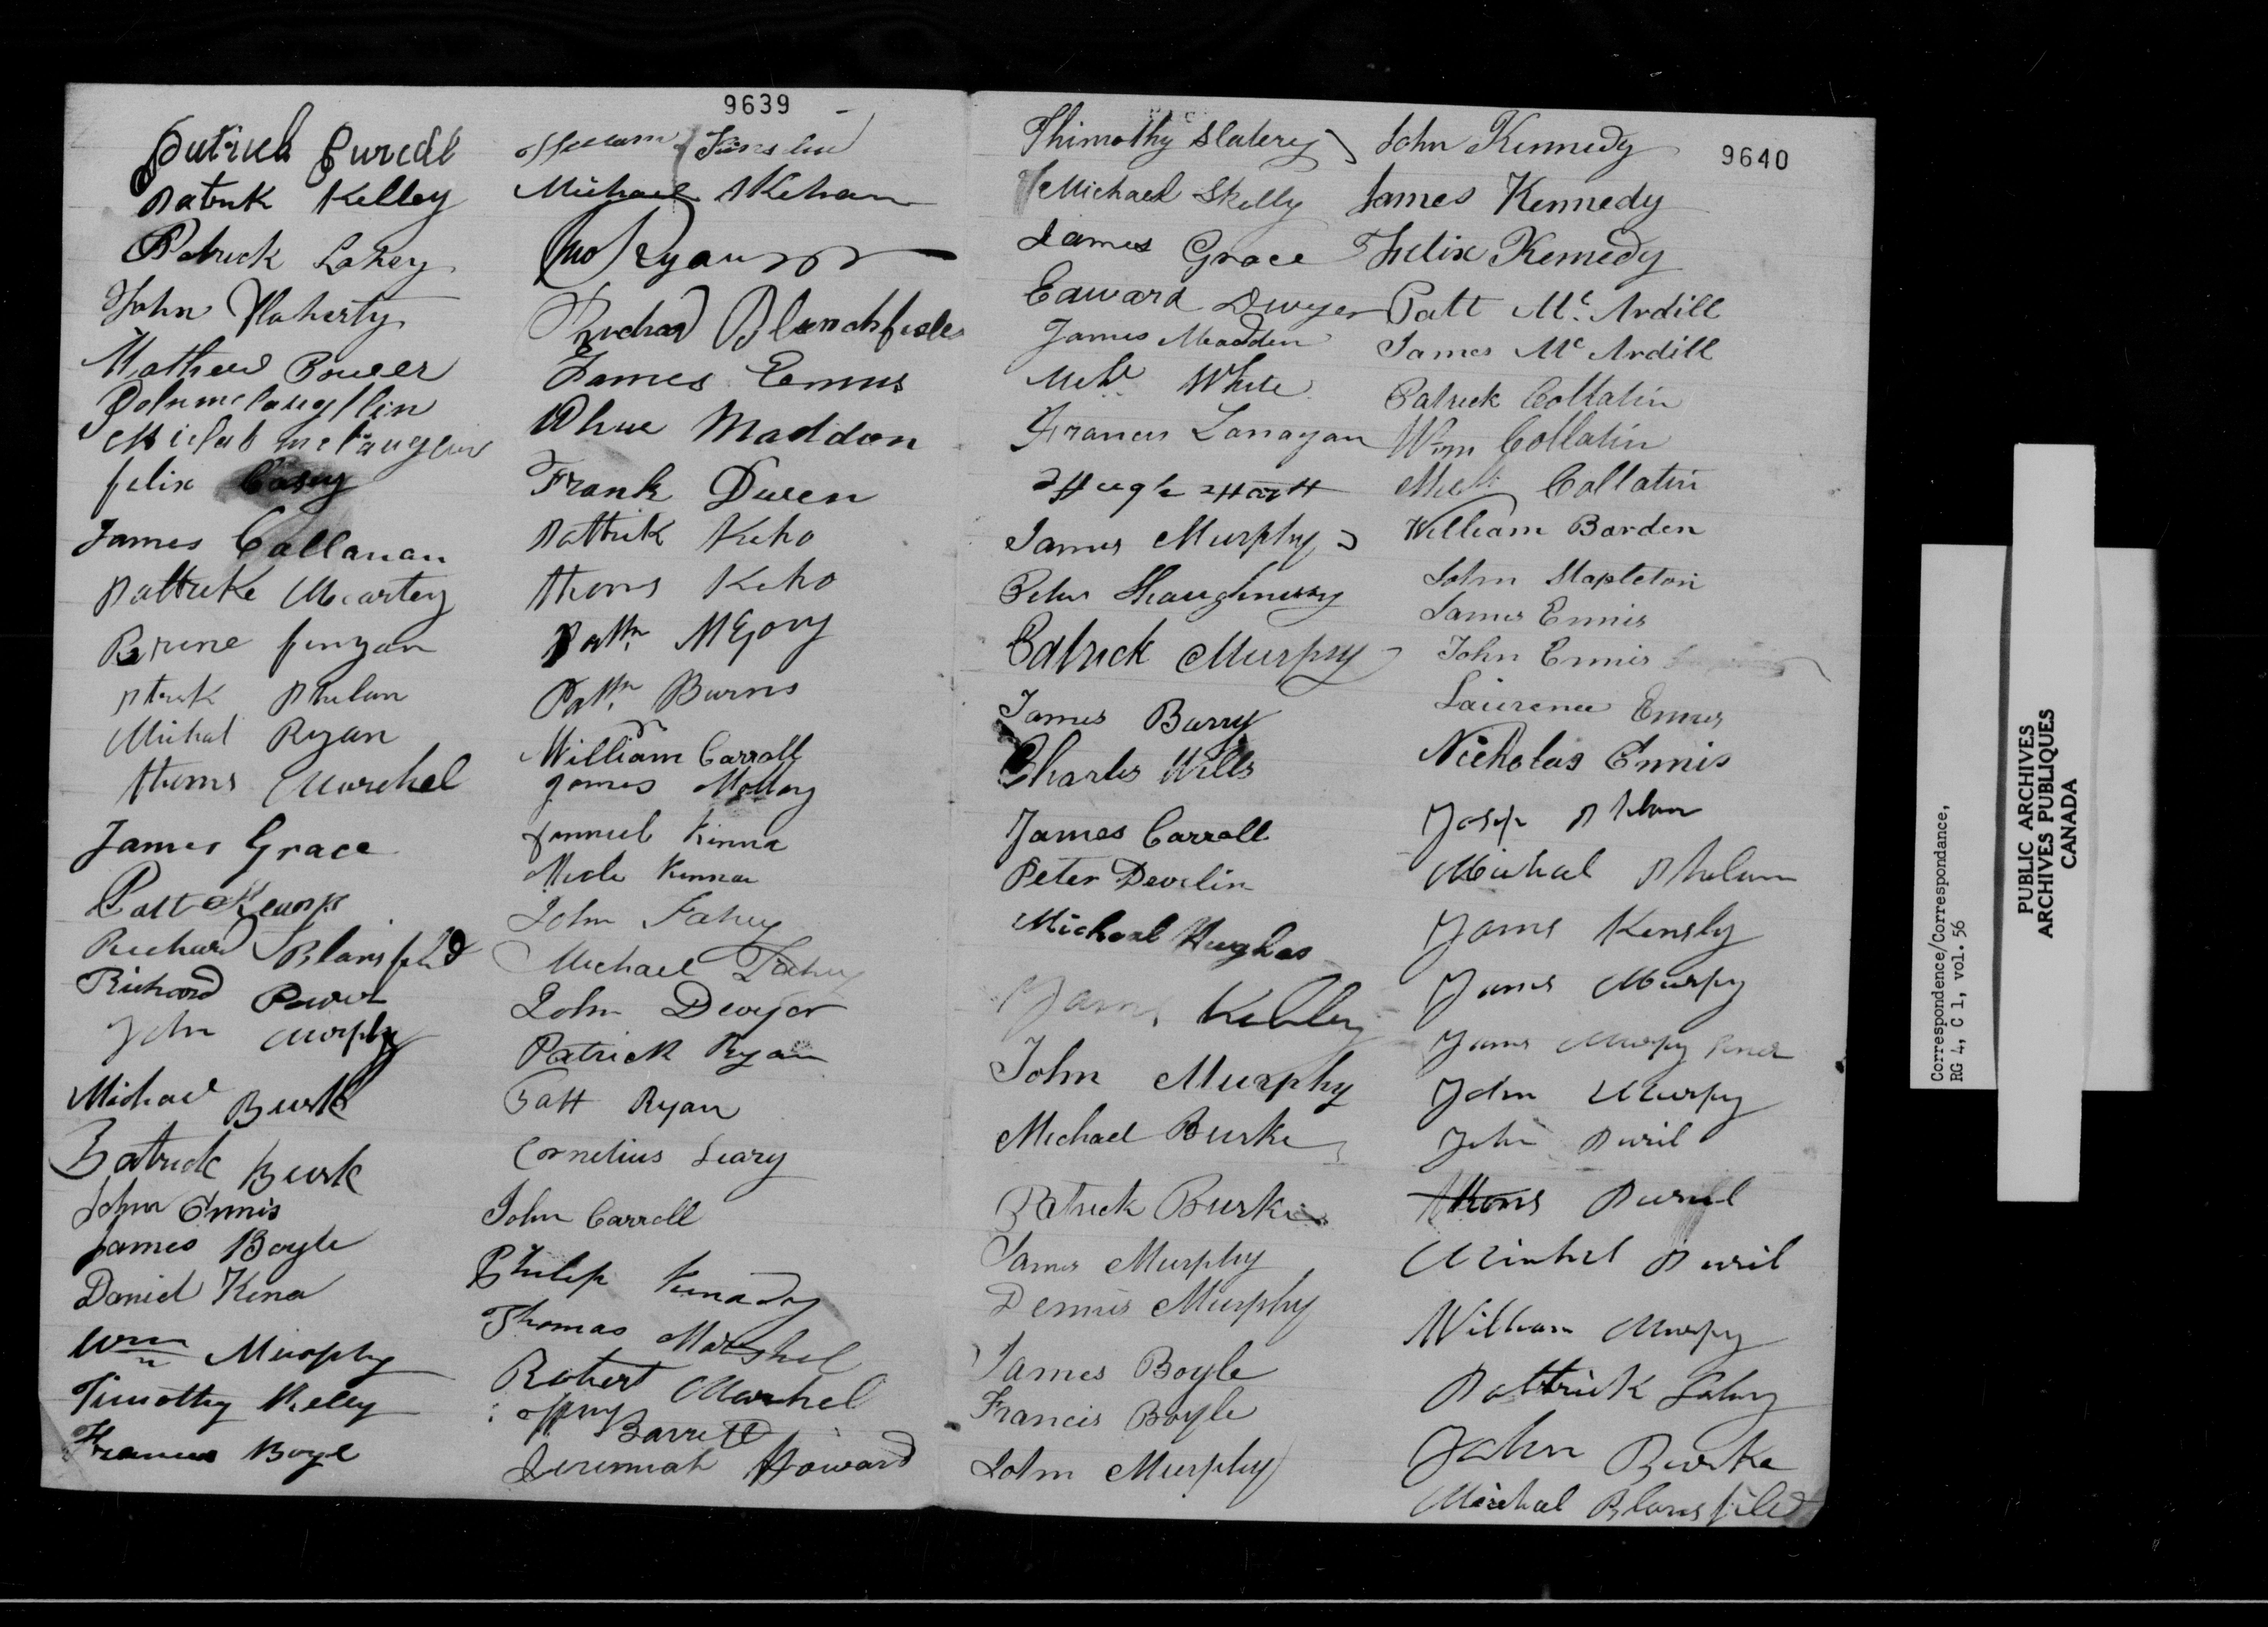 9639
Patrick Purcell
Patrick Kelley
Patrick Lahey
John Flaherty
Mathew Power
John mclaughlin
Michal mclaughlin
felix Casey
James Callanan
Pattricke Mcartey
Brine finyan
Ptrick Phelan
Michal Ryan
thoms Marchel
James Grace
Patt
Richard Blansfild
Richard Power
John Murphy
Michael Burk
Patrick Burk
John Ennis
James Boyle
Daniel Kena
Wm Murphy
Timothy Kelly
Francis Boyle
William
Michael Skehan
Jno Ryan
Richard Blanchfield
James Ennis
Maddon
Frank Duen
Pattrik Keho
thoms Keho
Pattk McGovy
Pattk Burns
William Carroll
James Molloy
Kinna
Kinna
John Fahey
Michael Fahey
John Dwyer
Patrick Ryan
Patt Ryan
Cornelius Leary
John Carroll
Philip Kenady
Thomas Marshel
Robert Marshel
Barrett
Jeremiah Howard
Thimothy Slatery
Michael Skelly
James Grace
Edward Dwyer
James Madden
Michl White
Francis Lanagan
Hugh Hart
James Murphy
Peter Shaughnessy
Patrick Murphy
James Barry
Charles Wills
James Carroll
Peter Develin
Michael Hughes
James Kelley
John Murphy
Michael Burke
Patrick Burke
James Murphy
Dennis Murphy
James Boyle
Francis Boyle
John Murphy
9640
John Kennedy
James Kennedy
Felix Kennedy
Patt Mc Ardill
James Mc Ardill
Patrick Collatin
Wm Collatin
Michl Collatin
William Barden
John Stapleton
James Ennis
John Ennis
Laurence Ennis
Nicholas Ennis
Josep Phelan
Michal Phelan
Jams Kensly
Jams Murpy
Jams Murpy
John Murpy
John Puril
thoms Puril
Michel Puril
William Murpy
Pattrick Lahey
John Burke
Michal Blansfild
Correspondence/Correspondance,
RG 4, C 1, vol. 56
PUBLIC ARCHIVES
ARCHIVES PUBLIQUES
CANADA